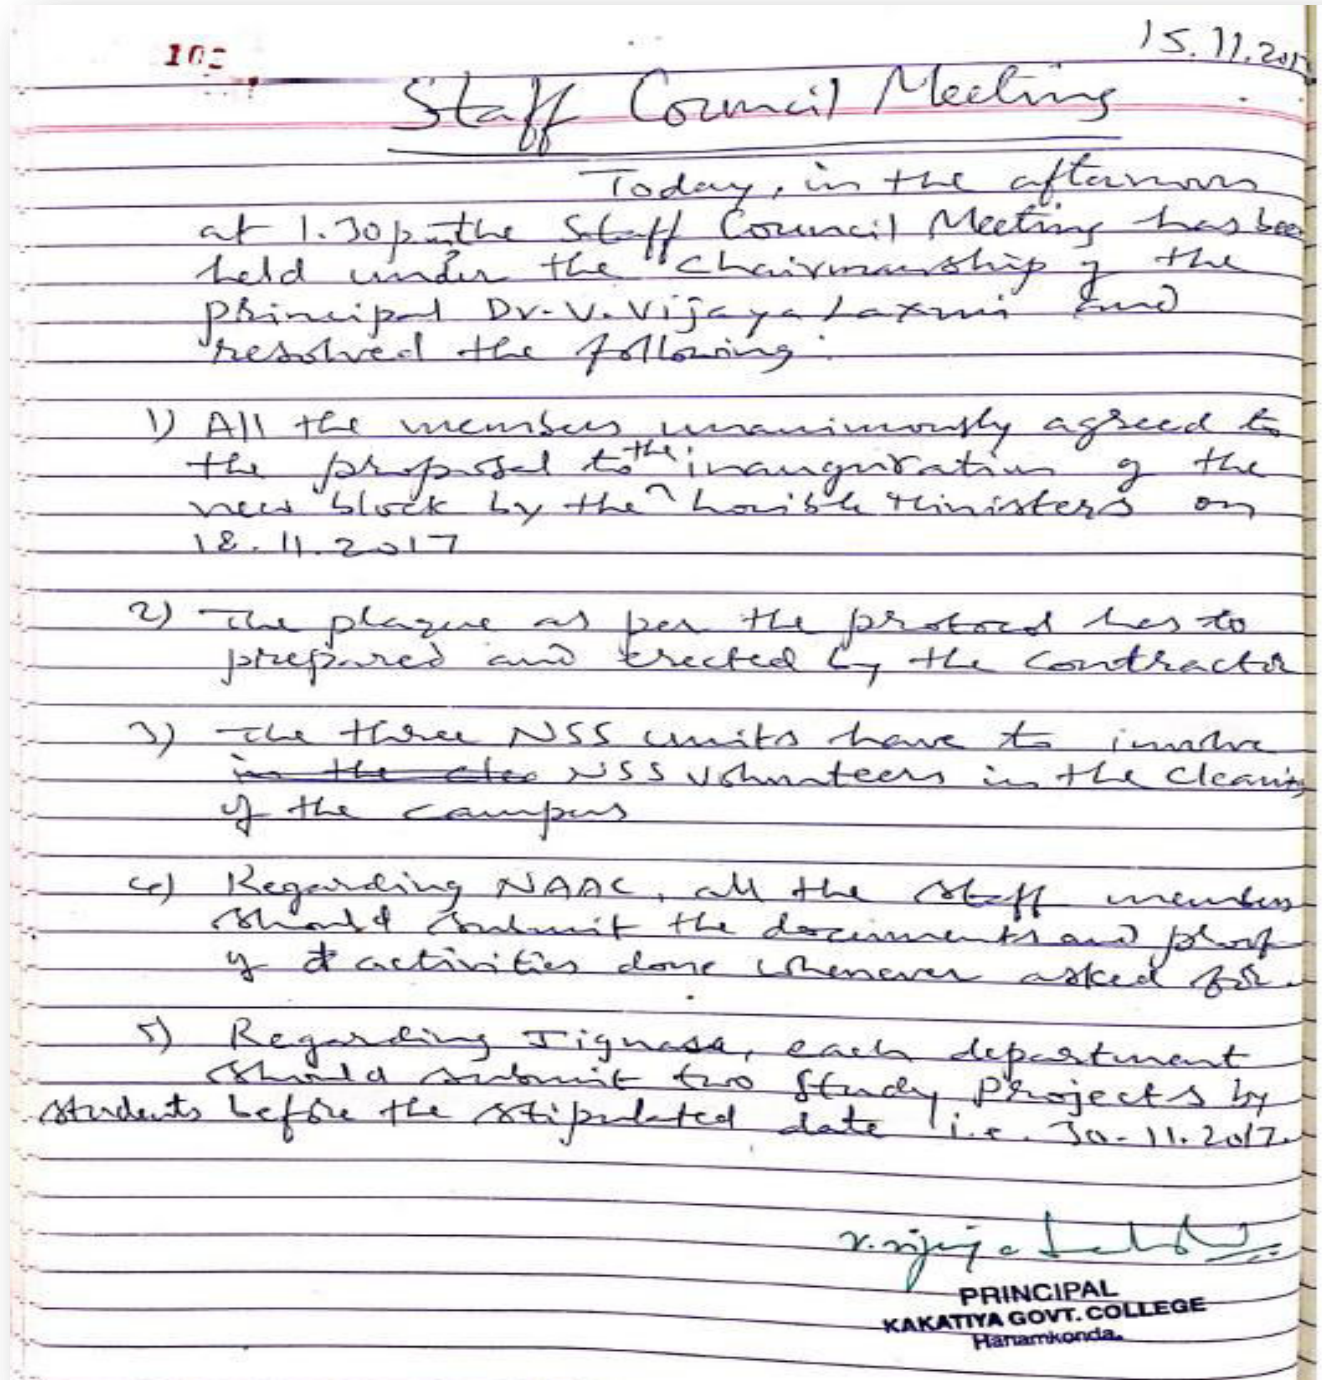 15.11.201
102
Staff Council Meeting
Today, in the afternoon
at 1.30pm the Staff Council Meeting has been
held under the Chairmanship of the
principal Dr. V. Vijaya Laxmi and
resolved the following:
1) All the members unanimously agreed to
the proposal to the inauguration of the
new block by the hon'ble Ministers on
18.11.2017
2) The plaque as per the protocol has to
prepared and erected by the contractor
3) The three NSS units have to involve
in the clea NSS volunteers in the cleaning
of the campus
4) Regarding NAAC, all the staff members
should submit the documents and proof
of activities done whenever asked for.
5) Regarding Jignasa, each department
should submit two study projects by
students before the stipulated date i.e. 30-11.2017.
V. Vijaya
PRINCIPAL
KAKATIYA GOVT. COLLEGE
Hanamkonda.